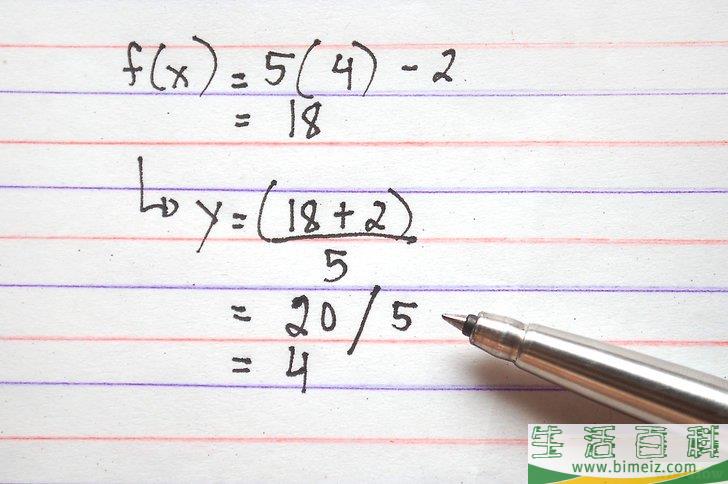 f(x) = 5(4) - 2
= 18
↳ y = (18 + 2)
5
= 20 / 5
= 4
生活百科
www.bimeiz.com